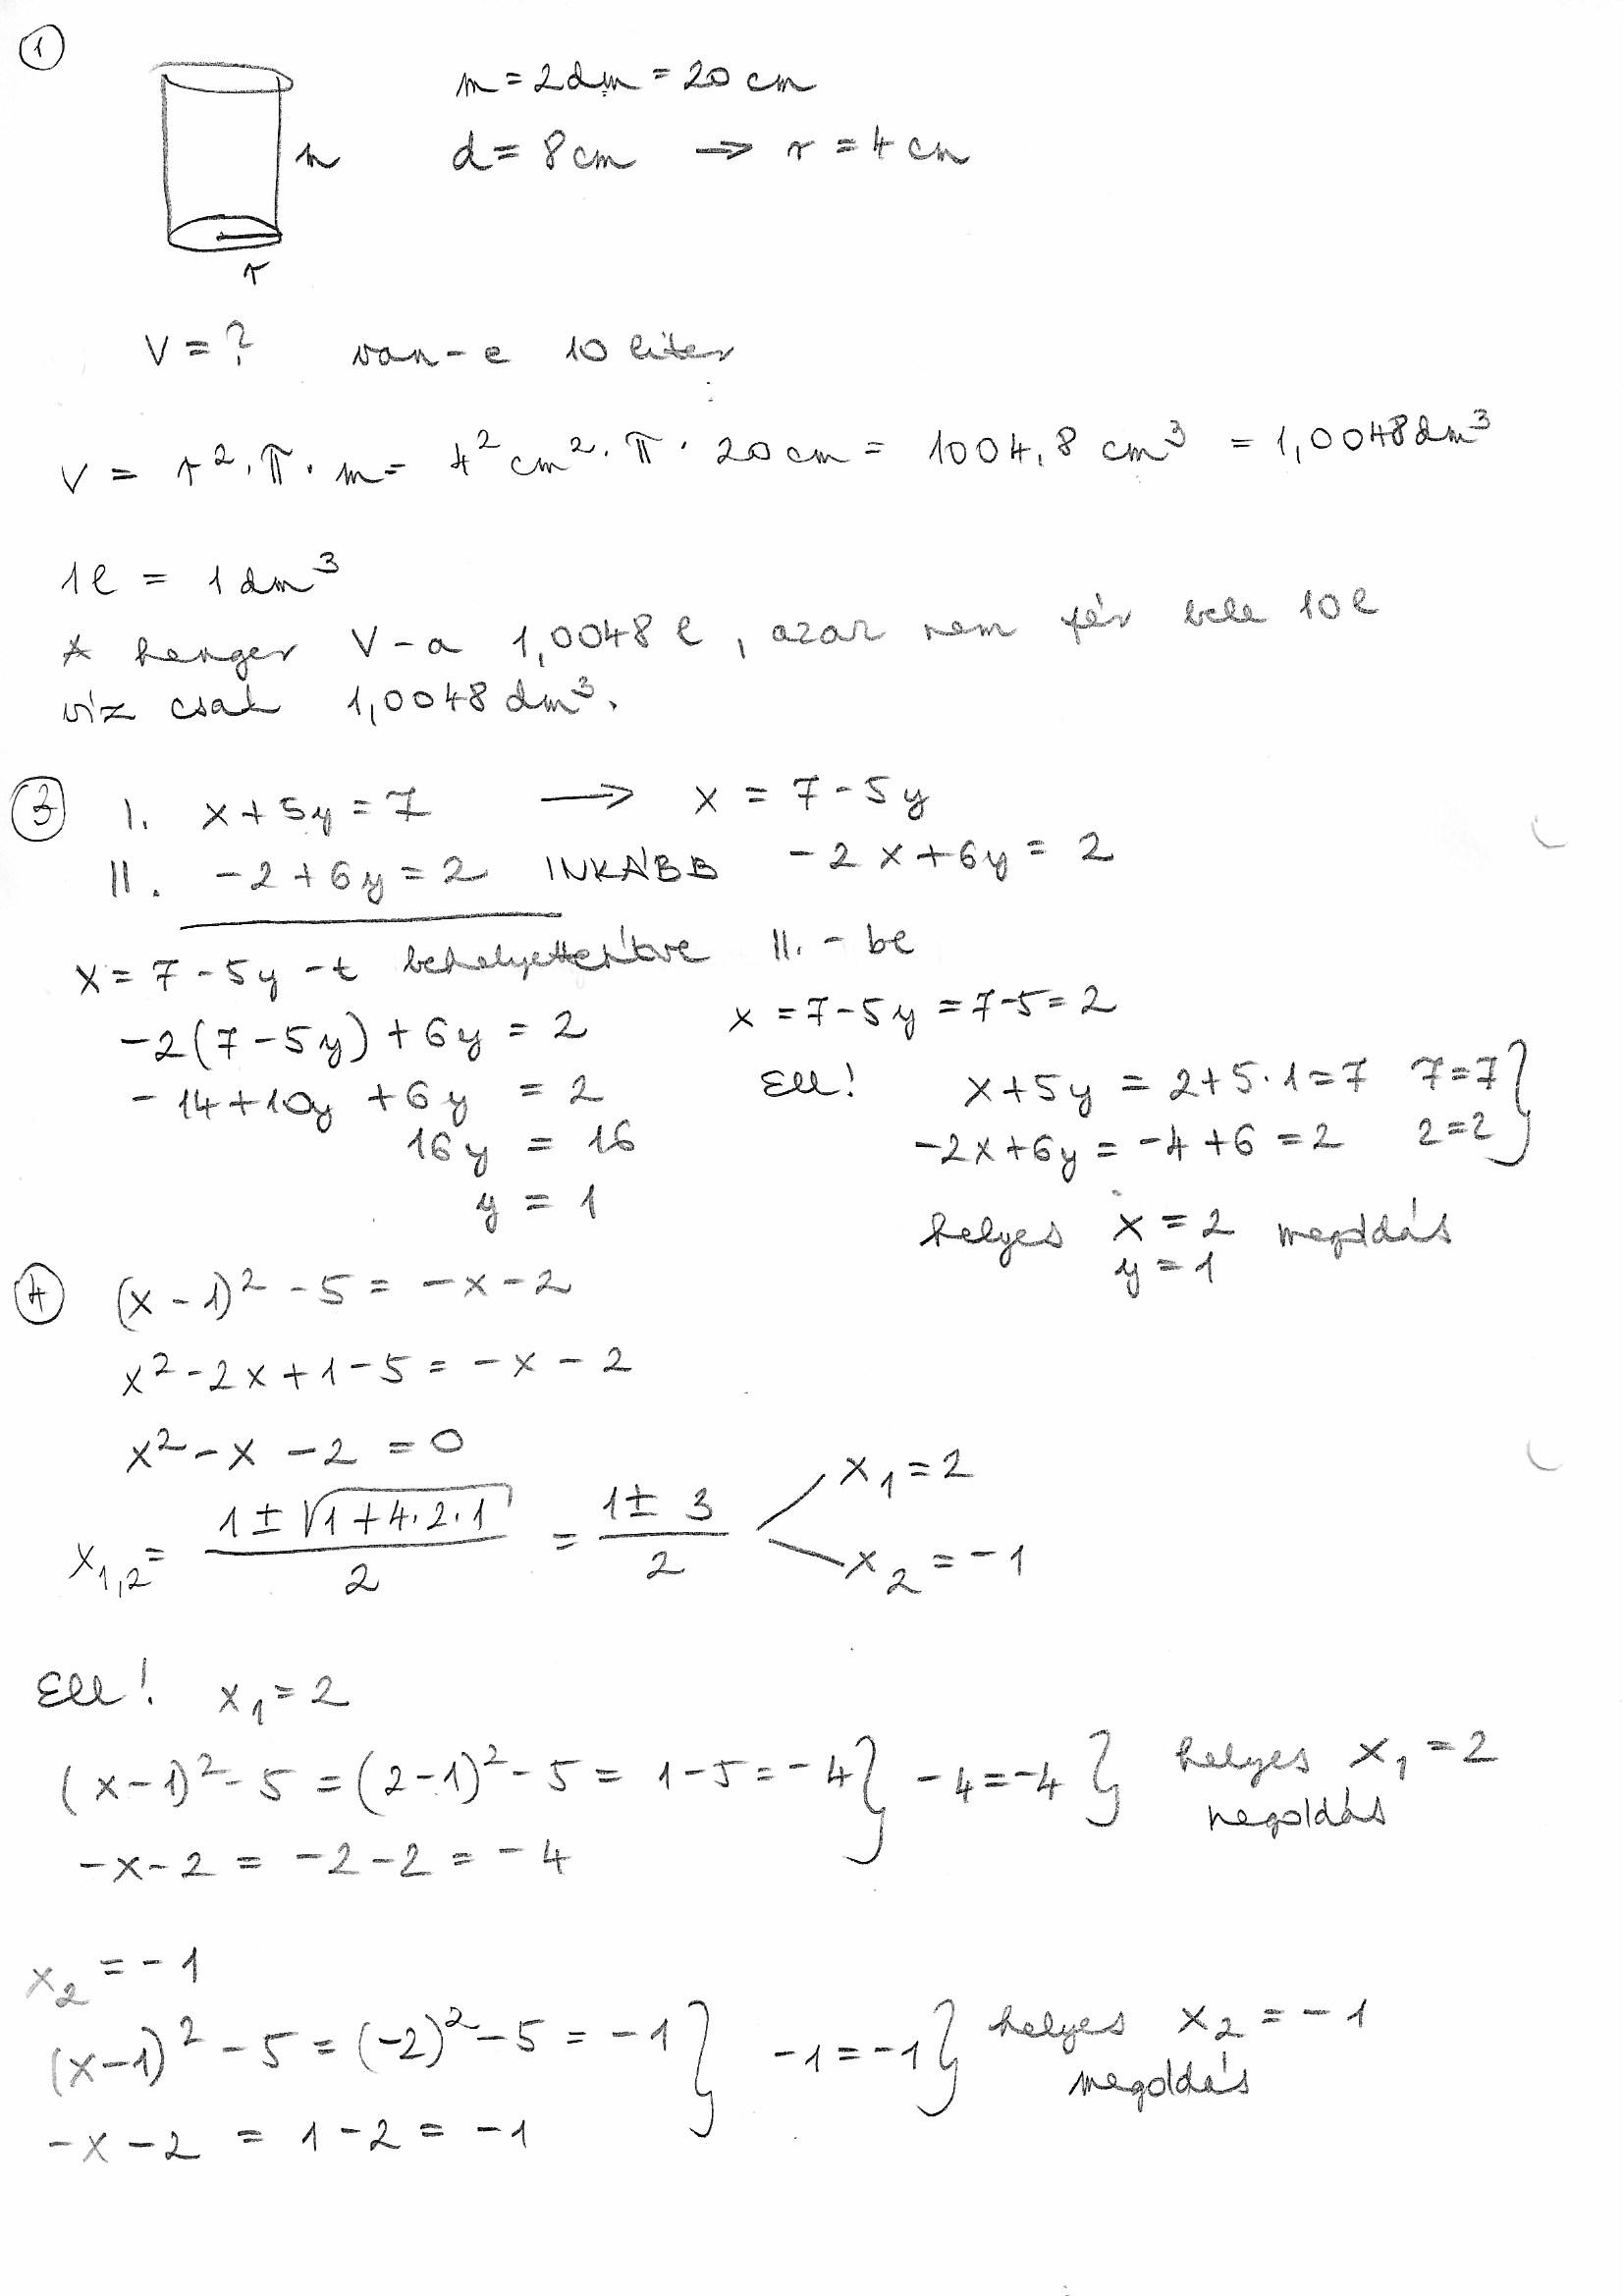 1
m = 2dm = 20 cm
m
d = 8 cm → r = 4 cm
r
V = ? van-e 10 liter
V = r²·π·m = 4² cm²·π·20 cm = 1004,8 cm³ = 1,0048 dm³
1l = 1 dm³
A henger V-a 1,0048 l, azaz nem fér bele 10l
víz csak 1,0048 dm³.
3 I. x + 5y = 7 → x = 7 - 5y
II. -2 + 6y = 2 INKÁBB -2x + 6y = 2
x = 7 - 5y -t behelyettesítve II. - be
-2(7 - 5y) + 6y = 2
x = 7 - 5y = 7 - 5 = 2
-14 + 10y + 6y = 2
Ell! x + 5y = 2 + 5·1 = 7 7 = 7 }
16y = 16
-2x + 6y = -4 + 6 = 2 2 = 2
y = 1
helyes x = 2 megoldás
y = 1
4 (x - 1)² - 5 = -x - 2
x² - 2x + 1 - 5 = -x - 2
x² - x - 2 = 0
x₁,₂ = (1 ± √(1 + 4·2·1)) / 2 = (1 ± 3) / 2
x₁ = 2
x₂ = -1
Ell! x₁ = 2
(x - 1)² - 5 = (2 - 1)² - 5 = 1 - 5 = -4 } -4 = -4 } helyes x₁ = 2
megoldás
-x - 2 = -2 - 2 = -4
x₂ = -1
(x - 1)² - 5 = (-2)² - 5 = -1 } -1 = -1 } helyes x₂ = -1
megoldás
-x - 2 = 1 - 2 = -1